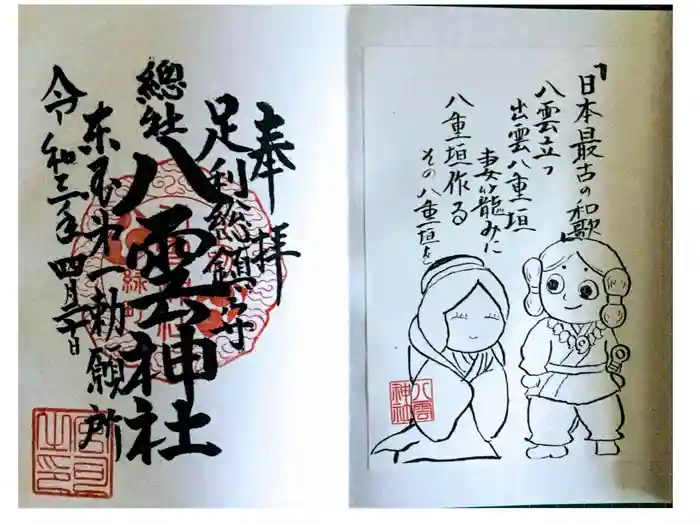 「日本最古の和歌
八雲立つ
出雲八重垣
妻籠みに
八重垣作る
その八重垣を
八雲
神社
奉拝
足利総鎮守
總社
八雲神社
東国第一勅願所
令和三年四月三十日
緑町
宮司之印